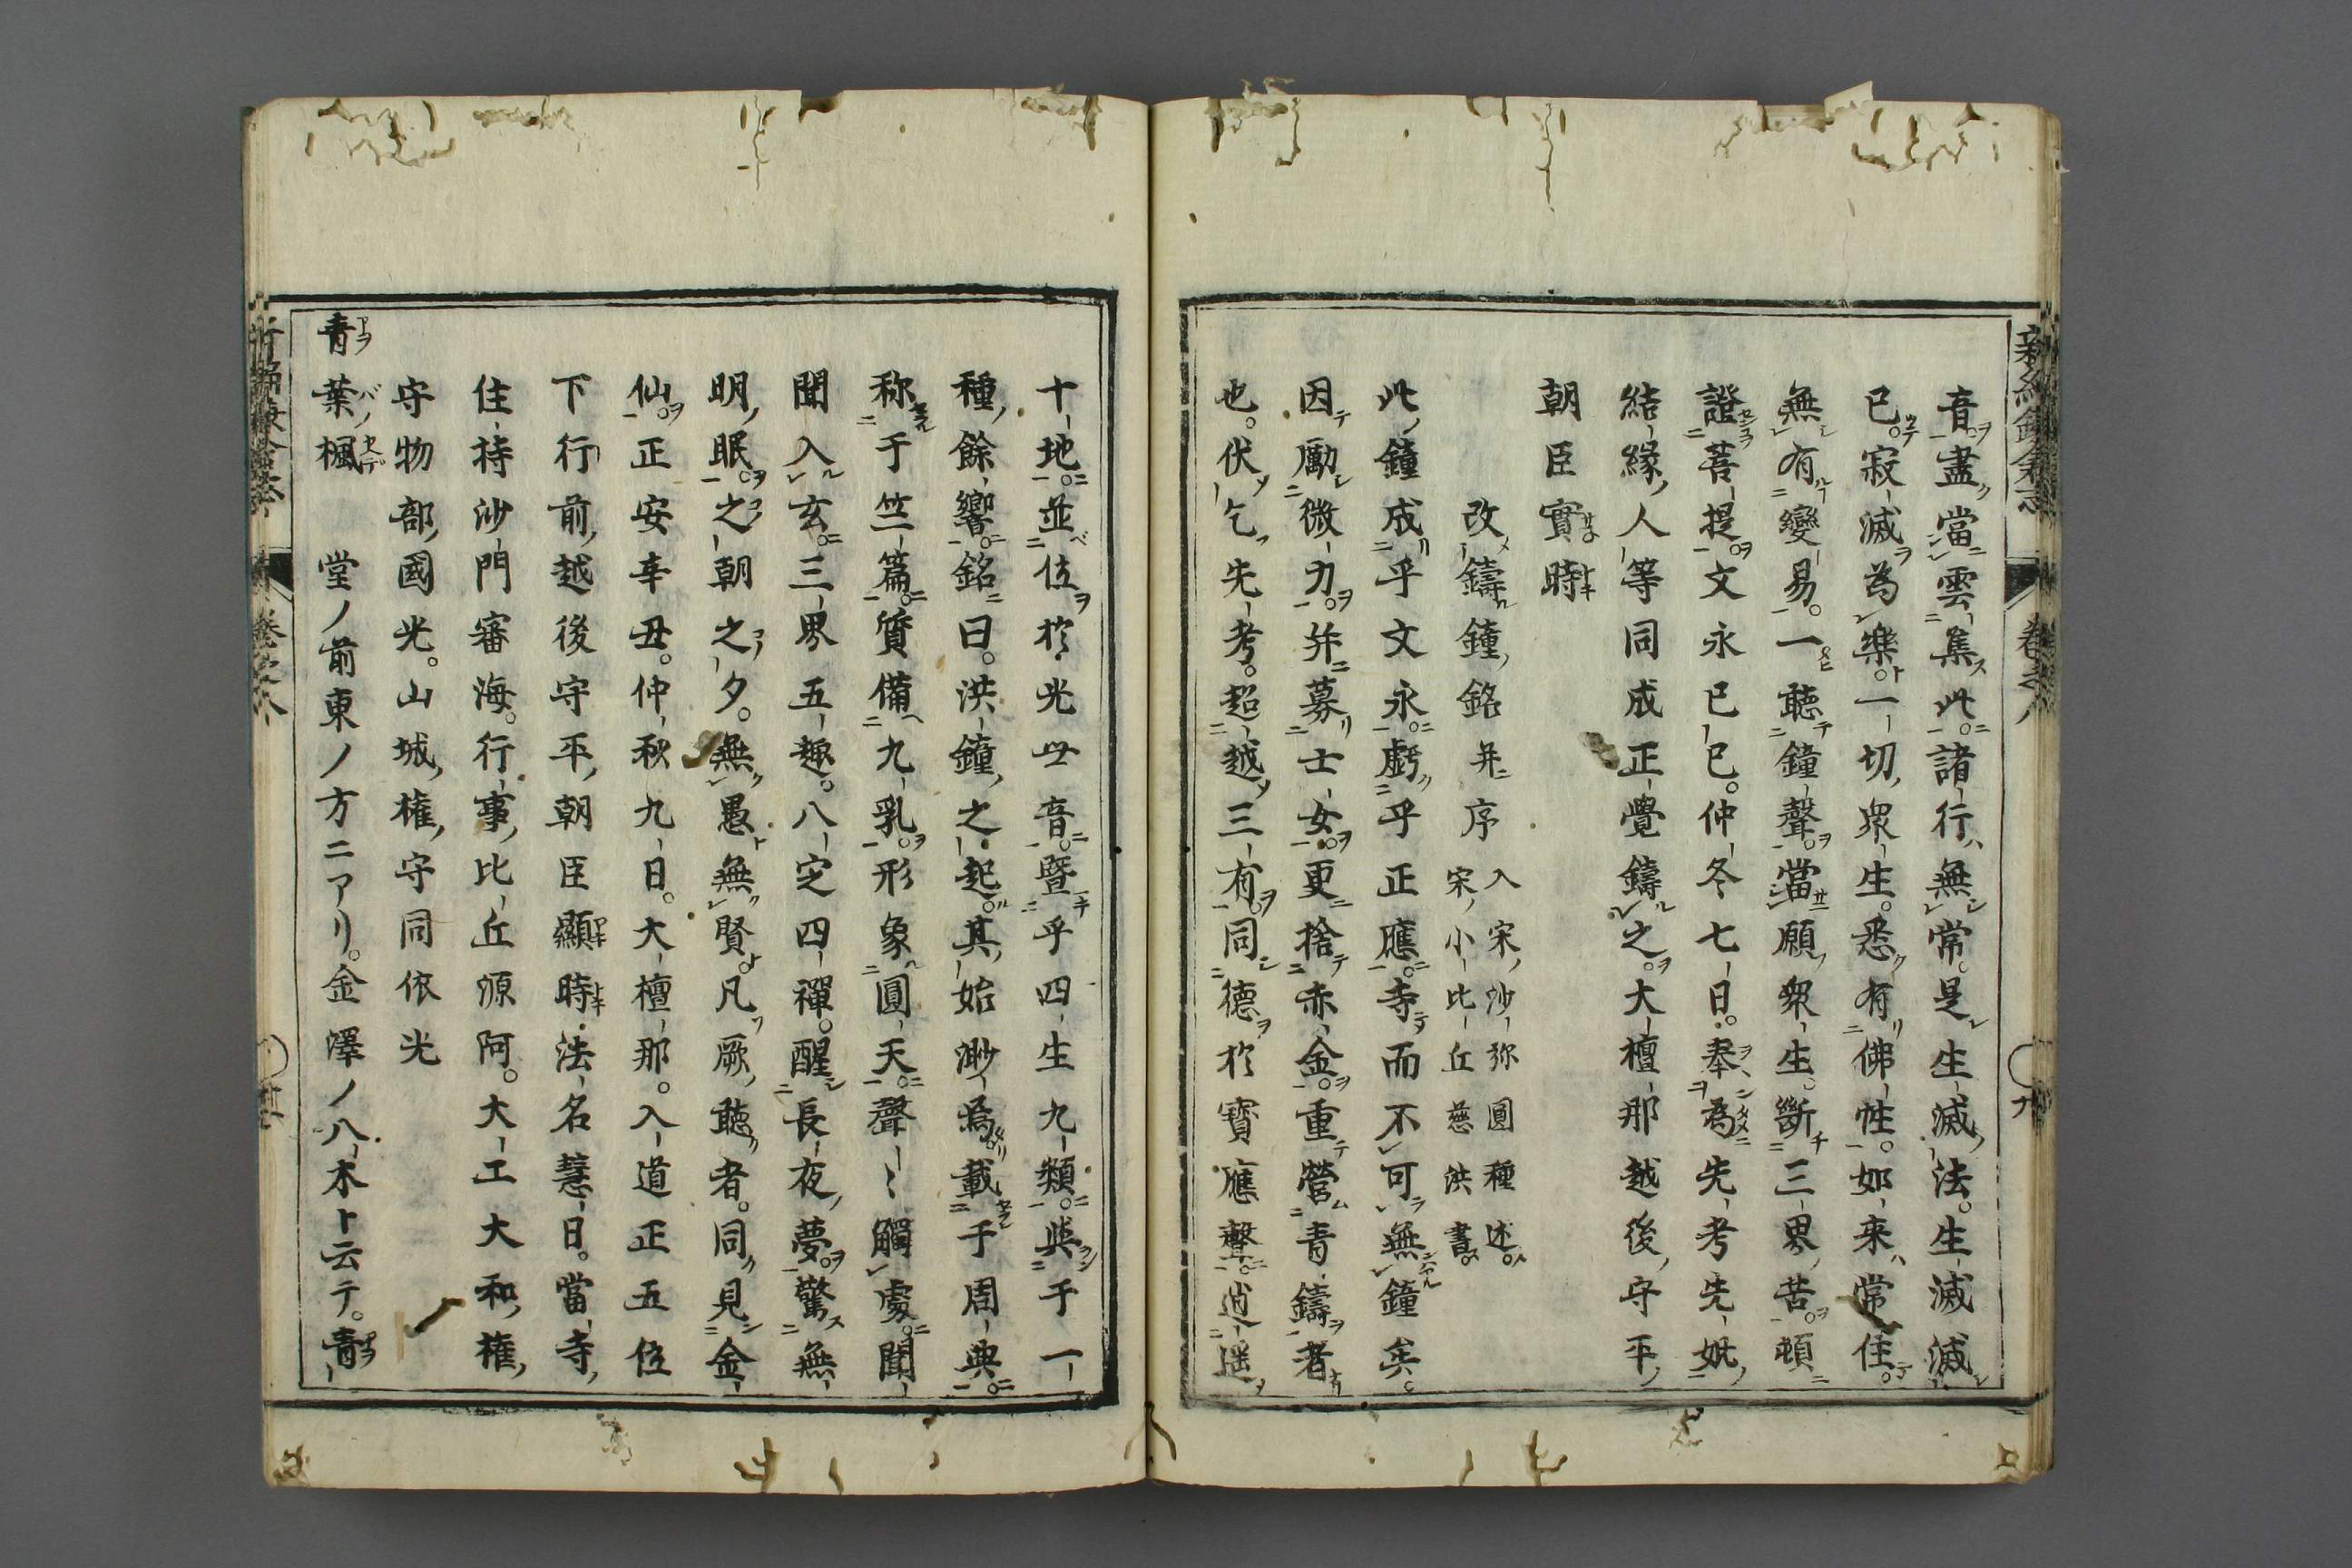 音盡當雲集此諸行無常是生滅法生滅滅
已寂滅為樂一切衆生悉有佛性如来常住
無有變易一聽鐘聲當願衆生斷三界苦頓
證菩提文永己巳仲冬七日奉為先考先妣
結緣人等同成正覺鑄之大檀那越後守平
朝臣實時
改鑄鐘銘并序
入宋沙弥圓種述
宋小比丘慈洪書
此鐘成乎文永虧乎正應寺而不可無鐘矣
因勵微力并募士女更捨赤金重營青鑄者
也伏乞先考超越三有同德於寶應聲逍遥
十地並位於光世音曁乎四生九類與于一
種餘響銘曰洪鐘之起其始渺焉載于周典
称于竺篇質備九乳形象圓天聲〻觸處聞
聞入玄三界五趣八定四禪醒長夜夢驚無
明眠之朝之夕無愚無賢凡厥聽者同見金
仙正安辛丑仲秋九日大檀那入道正五位
下行前越後守平朝臣顯時法名慧日當寺
住持沙門審海行事比丘源阿大工大和權
守物部國光山城權守同依光
青葉楓　堂ノ前東ノ方ニアリ。金澤ノ八木ト云テ。青